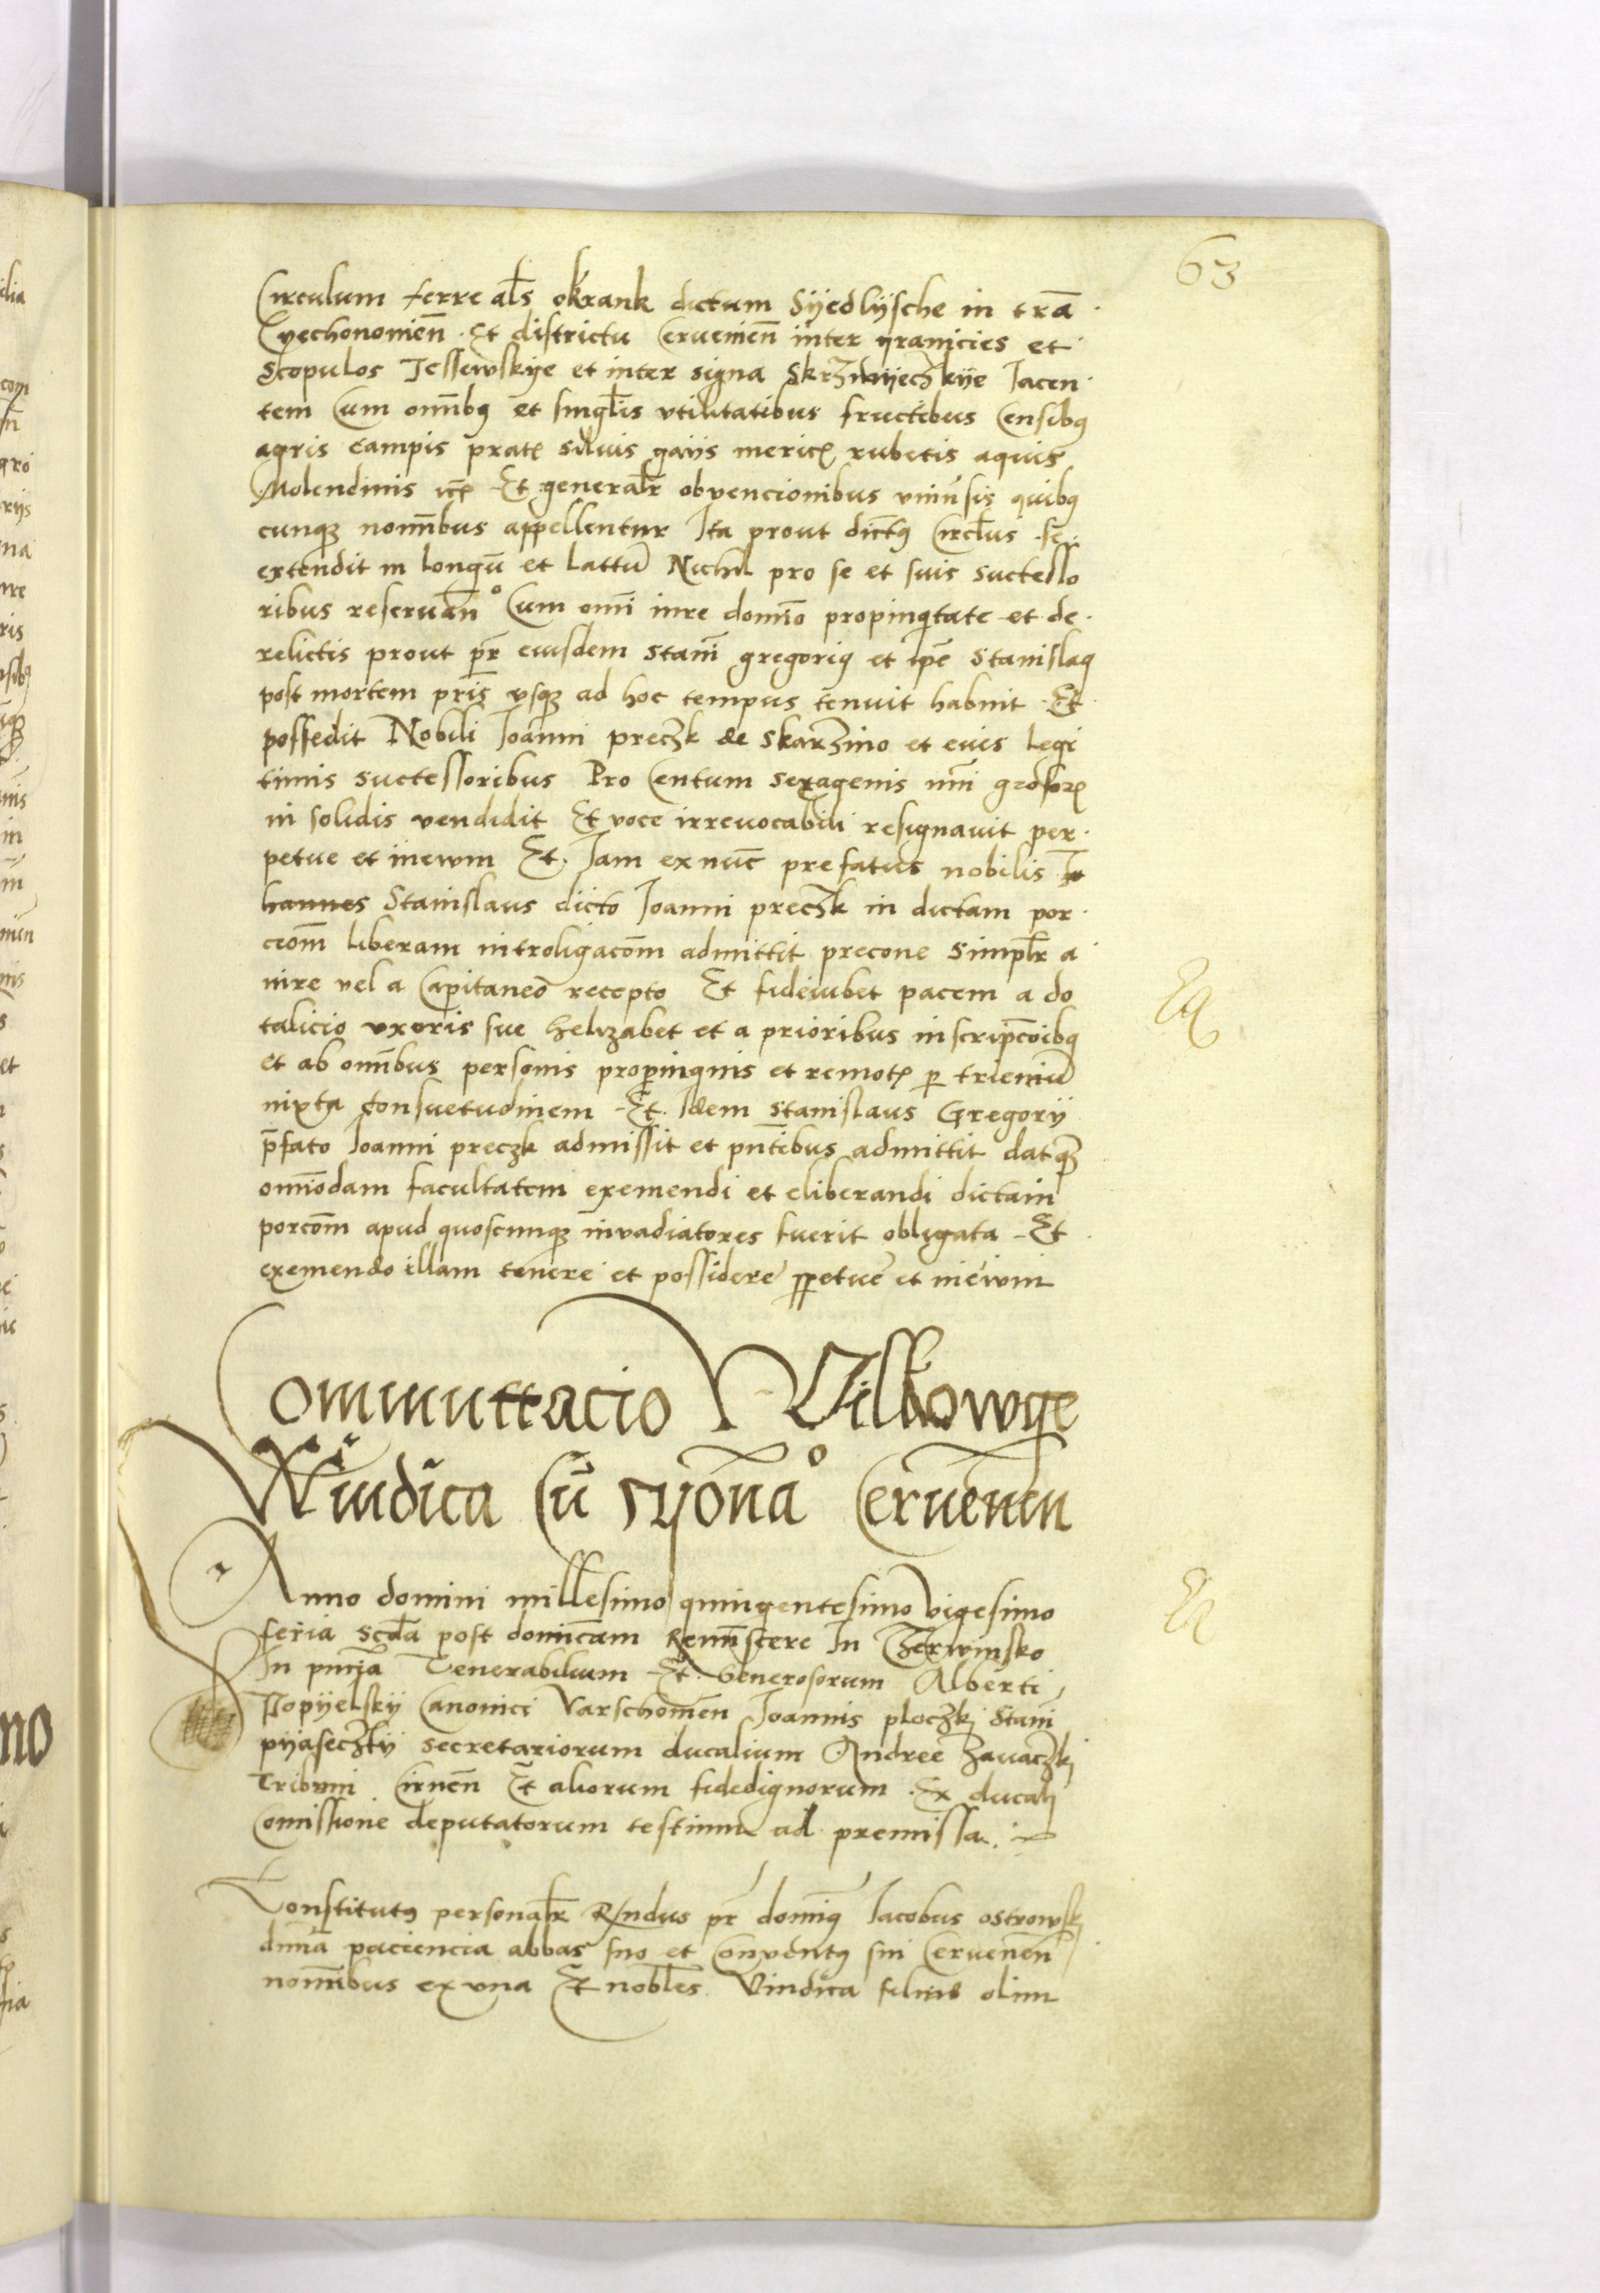 63
Circulum terre al̃s okrank dictum Syedlysche in trã
Cyechonomieñ Et districtu Ceruenieñ inter granicies et
Scopulos Jessewskye et inter signa Skrzmyeczkye Jacen
tem Cum om̃ibq et singl̃is vtilitatibus fructibus Censibq
agris campis prat silvis gaiis meric rubetis aquis
Molendinis Et general̃r obvencionibus vniũsis quibq
cunqz nom̃ibus appellentur Ita prout dict̃q Circl̃us se
extendit in longũ et lattũ Nichil pro se et suis successo
ribus reseruañ° Cum om̃i iure dominĩo propinqitate et de
relictis prout pr̃r eiusdem Stani gregoriq et ip̃e Stanislaq
post mortem pr̃is vsqz ad hoc tempus tenuit habuit Et
possedit Nobili Joanni preczk de Skarzino et euis legi
timis successoribus Pro Centum sexagenis nũi grossor
in solidis vendidit Et voce irreuocabili resignauit per
petue et inewm Et Jam ex nũc prefatus nobilis Jo
hannes Stanislaus dicto Joanni preczk in dictam por
ciom̃ liberam introligacom̃ admittit precone simpl̃r a
iure vel a Capitaneo recepto Et fideiubet pacem a do
talicio vxoris sue helizabet et a prioribus inscripc̃oibq
et ab om̃ibus personis propinquis et remot p trieniũ
iuxta Consuetudinem Et Idem Stanislaus Gregorii
p̃fato Joanni preczk admissit et pñtibus admittit datqz
omiõdam facultatem exemendi et eliberandi dictam
porcom̃ apud quoscunqz invadiatores fuerit obligata Et
exemendo illam tenere et possidere ppetue et inewm
Commuttacio Vilkowge
Windica Cũ ryona° Ceruenen
Anno domini millesimo quingentesimo vigesimo
feria scd̃a post domic̃am Remĩscere In Czerwinsko
In pñcia Venerabilium Et Generosorum Alberti
Popyelsky Canonici Varschomeñ Joannis ploczkj Stanĩ
pyaseczky secretariorum ducalium Andree Zauaczkj
Tribuni Cirneñ Et aliorum fidedignorum Ex ducali
Comissione deputatorum testium ad premissa
Constitutq personal̃r R̃ndus pr̃ domĩq Jacobus ostrowskj
diuinã paciencia abbas suo et Conventq sui Cerueneñ
nom̃ibus ex vna Et nobl̃es Vindica filius olim